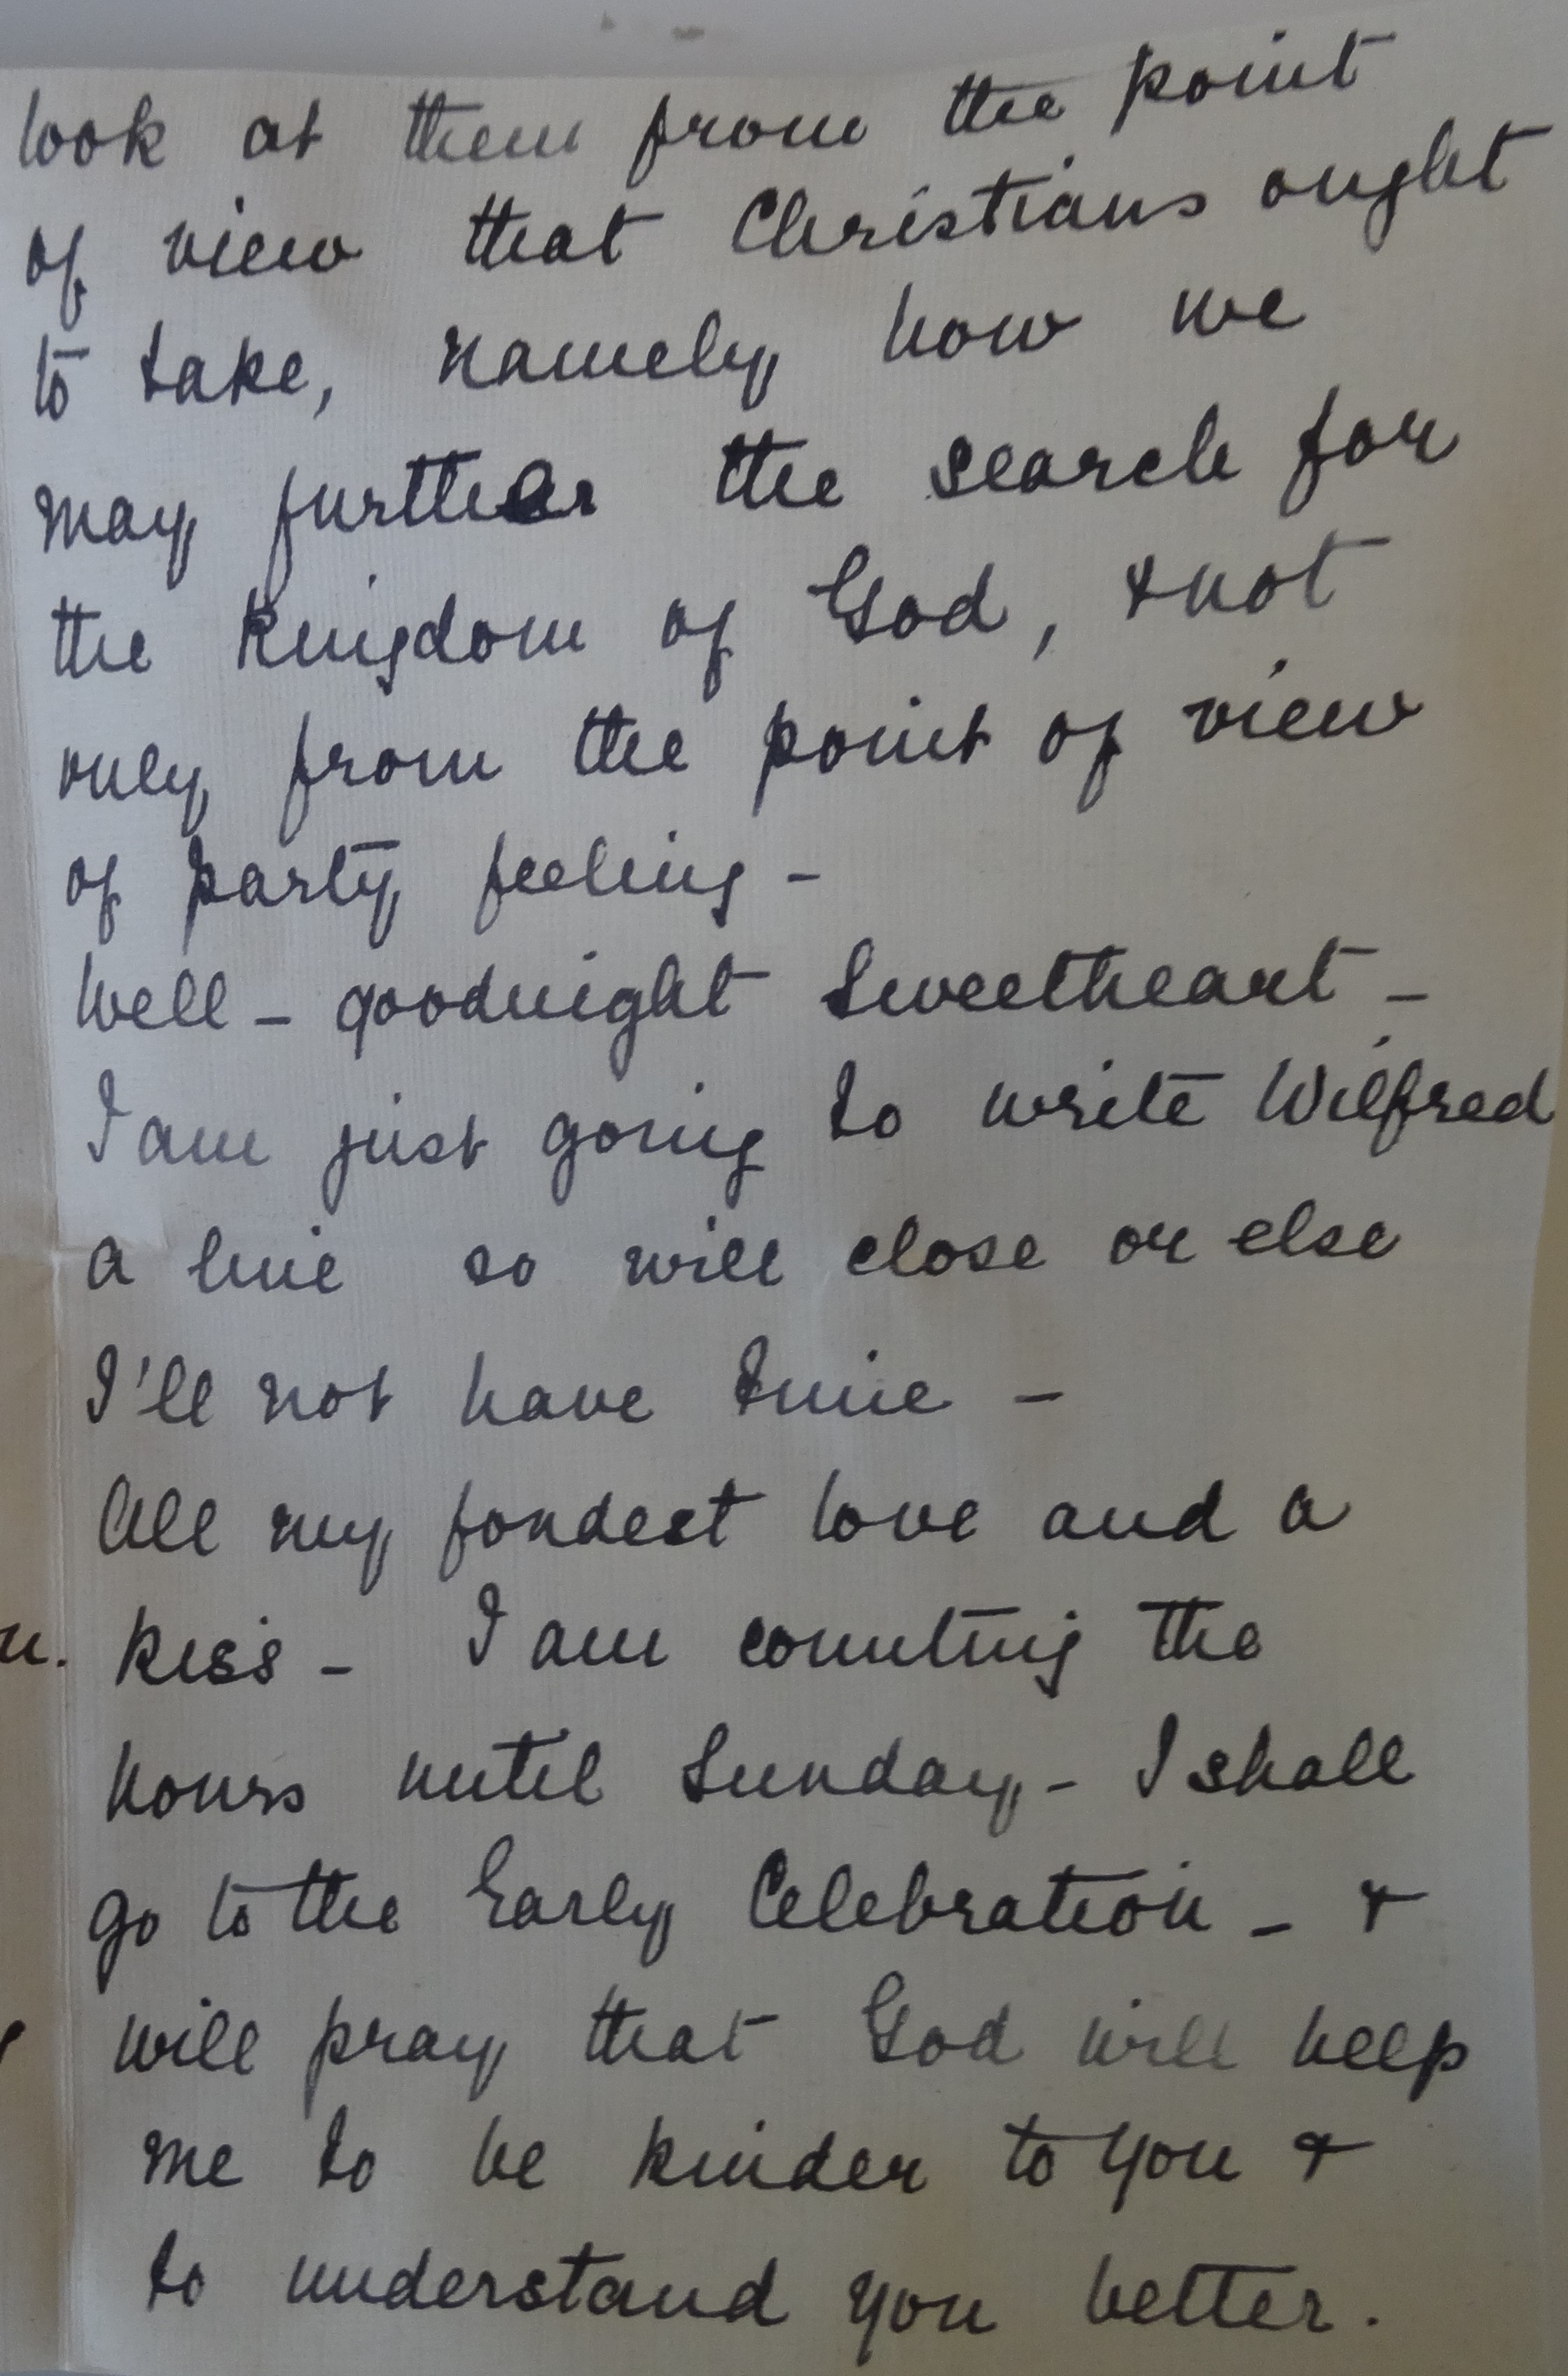 look at them from the point
of view that Christians ought
to take, namely how we
may further the search for
the Kingdom of God, & not
only from the point of view
of party feeling -
Well - goodnight Sweetheart -
I am just going to write Wilfred
a line so will close or else
I'll not have time -
All my fondest love and a
kiss - I am counting the
hours until Sunday - I shall
go to the Early Celebration - &
will pray that God will help
me to be kinder to you &
to understand you better.